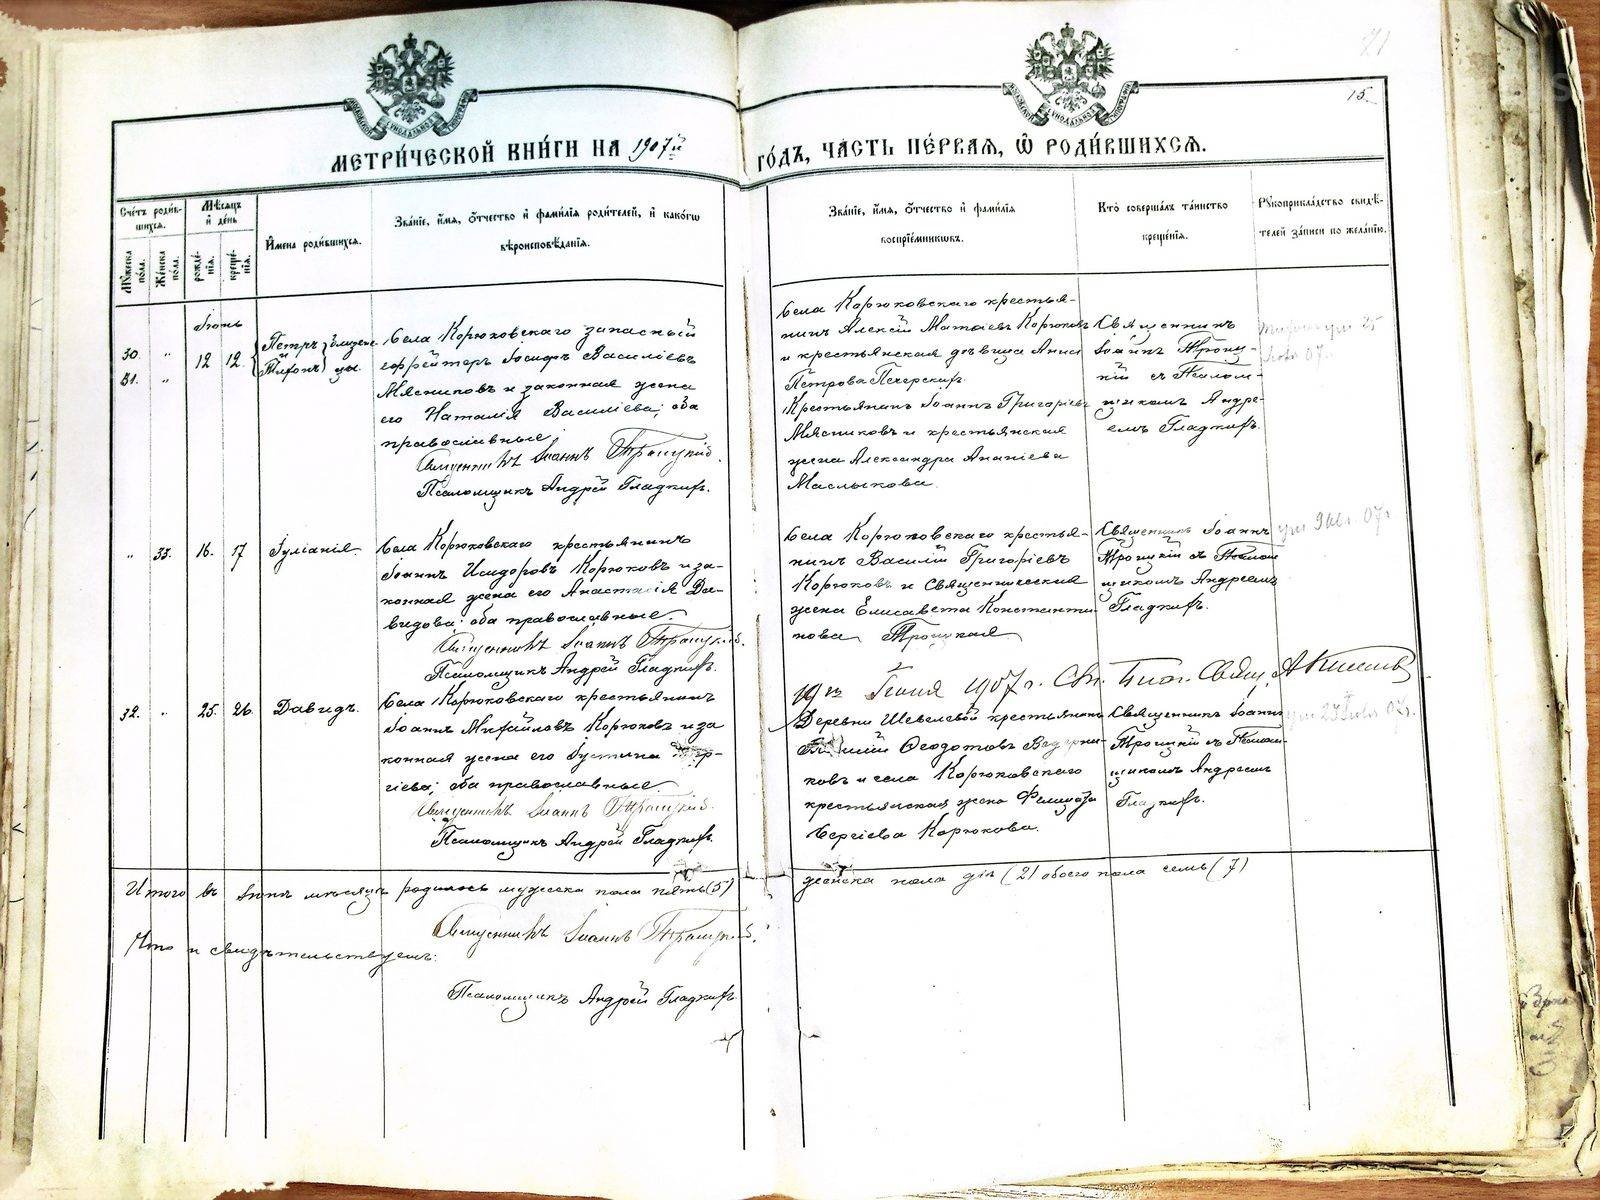 71
15.
МЕТРИ́ЧЕСКОЙ КНИ́ГИ НА 1907й ГО́ДЪ, ЧАСТЬ ПЕ́РВАЯ, Ѽ РОДИ́ВШИХСЯ.
Счетъ роди́в-
шихся.
Му́жеска по́ла.
Же́нска по́ла.
Мѣсяцъ и де́нь
рожде́-
нія.
креще́-
нія.
Имена роди́вшихся.
Зва́ніе, и́мя, о́тчество и фами́лія роди́телей, и како́гѡ
вѣроисповѣ́данія.
Зва́ніе, и́мя, о́тчество и фами́лія
воспріе́мниковъ.
Кто̀ соверша́лъ та́инство
креще́нія.
Рꙋкоприкла́дство свидѣ́-
телей за́писи по жела́нію.
Іюнь
30. "
31. "
12 12.
Петръ
и
Тифонъ
близне
цы.
Села Корюковскаго запасный
ефрейторъ Іосифъ Василіевъ
Мясниковъ и законная жена
его Наталія Василіева; оба
православные.
Священникъ Іоаннъ Троицкій.
Псаломщикъ Андрей Гладкихъ.
Села Корюковскаго крестья-
нинъ Алексій Матѳіевъ Корюковъ
и крестьянская дѣвица Анна
Петрова Печерскихъ.
Крестьянинъ Іоаннъ Григоріевъ
Мясниковъ и крестьянская
жена Александра Ананіева
Маслыкова.
Священникъ
Іоаннъ Троиц-
кій съ Псалом-
щикомъ Андре-
емъ Гладкихъ.
ум 25
07г.
" 33. 16. 17 Іуліанія.
Села Корюковскаго крестьянинъ
Іоаннъ Исидоровъ Корюковъ и за-
конная жена его Анастасія Да-
видова; оба православные.
Священникъ Іоаннъ Троицкій.
Псаломщикъ Андрей Гладкихъ.
Села Корюковскаго крестья-
нинъ Василій Григоріевъ
Корюковъ и Священническая
жена Елисавета Константи-
нова Троицкая
Священникъ Іоаннъ
Троицкій съ Псалом
щикомъ Андреемъ
Гладкихъ.
ум 9 07г
19го Іюня 1907 г. Свящ.
32. " 25. 26. Давидъ.
Села Корюковскаго крестьянинъ
Іоаннъ Михайловъ Корюковъ и за
конная жена его Іустина
гіева; оба православные.
Священникъ Іоаннъ Троицкій.
Псаломщикъ Андрей Гладкихъ.
Деревни Шевелевой крестьянинъ
Ѳеодотовъ Ведерни-
ковъ и села Корюковскаго
крестьянская жена Фелицата
Сергіева Корюкова.
Священникъ Іоаннъ
Троицкій съ Псалом-
щикомъ Андреемъ
Гладкихъ.
ум 23
Итого въ Іюнѣ мѣсяцѣ родилось мужеска пола пять (5) женска пола двѣ (2) обоего пола семь (7)
Священникъ Іоаннъ Троицкій.
Что и свидѣтельствуемъ:
Псаломщикъ Андрей Гладкихъ.